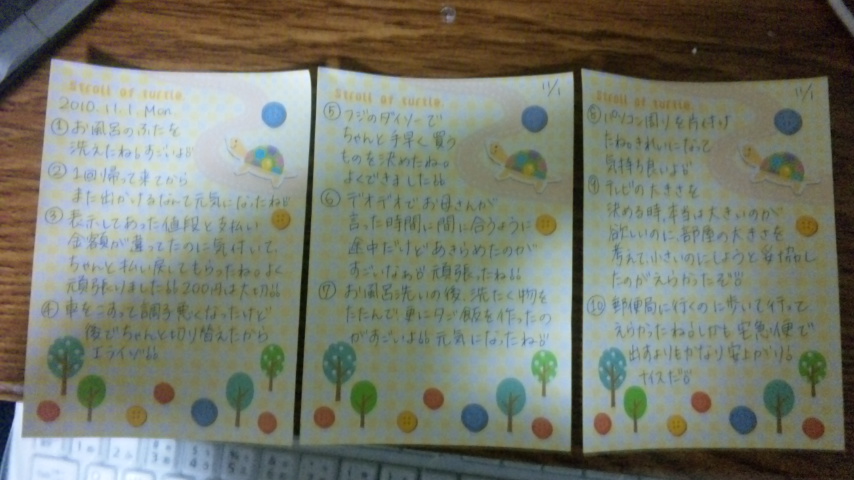 Stroll of turtle
2010. 11. 1. Mon
① お風呂のふたを
洗えたね。すごいよ!!
② 1回帰って来てから
また出かけるなんて元気になったね!!
③ 表示してあった値段と支払い
金額が違ってたのに気付いて、
ちゃんと払い戻してもらったね。よく
頑張りました!! 200円は大切!!
④ 車をこすって調子悪くなったけど
後でちゃんと切り替えたから
エライゾ!!
Stroll of turtle
11/1
⑤ フジのダイソーで
ちゃんと手早く買う
ものを決めたね。
よくできました!!
⑥ デオデオでお母さんが
言った時間に間に合うように
途中だけどあきらめたのが
すごいなぁ!! 頑張ったね!!
⑦ お風呂洗いの後、洗たく物を
たたんで、更に夕ご飯を作ったの
がすごいよ!! 元気になったね!!
Stroll of turtle
11/1
パソコン周りを片付け
たね。きれいになって
気持ち良いよ!!
テレビの大きさを
決める時、本当は大きいのが
欲しいのに、部屋の大きさを
考えて小さいのにしようと妥協し
たのがえらかったぞ!!
⑩ 郵便局に行くのに歩いて行って
えらかったね!! しかも宅急便で
出すよりもかなり安上がり!!
ナイスだ!!